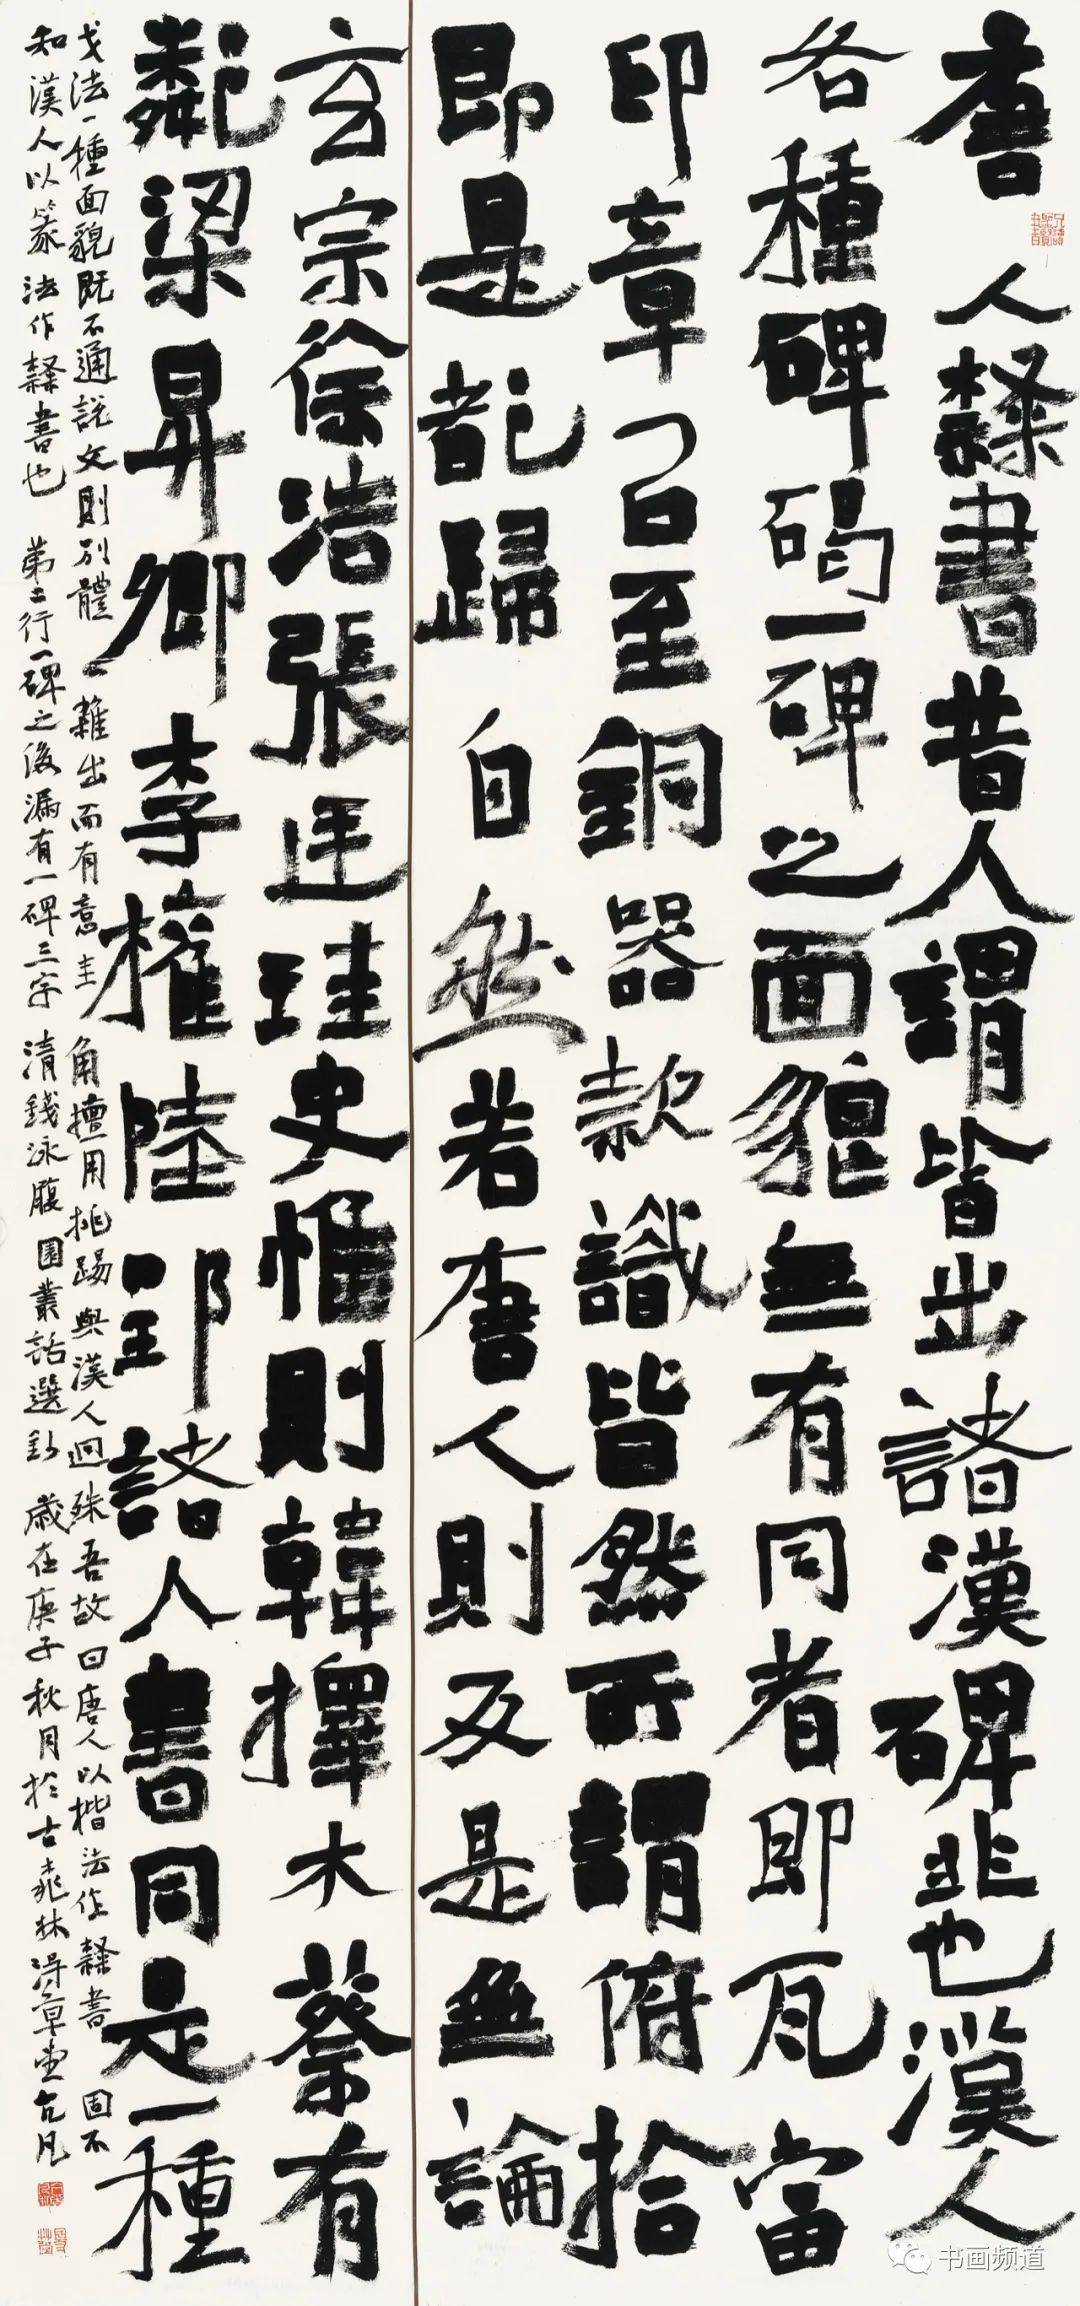 唐人隸書昔人謂皆出諸漢碑非也漢人
各種碑碣一碑之面貌無有同者即瓦當
印章以至銅器款識皆然所謂俯拾
即是都歸自然若唐人則反是無論
玄宗徐浩張廷珪史惟則韓擇木蔡有
鄰梁昇卿李權陸郢諸人書同是一種
戈法一種面貌既不通說文則別體一一雜出而有意圭角擅用挑踢與漢人迥殊吾故曰唐人以楷法作隸書固不
和漢人以篆法作隸書也 第二行一碑之後漏有一碑三字 清錢泳履園叢話選鈔 歲在庚子秋月於古桃林得章堂 凡
书画频道